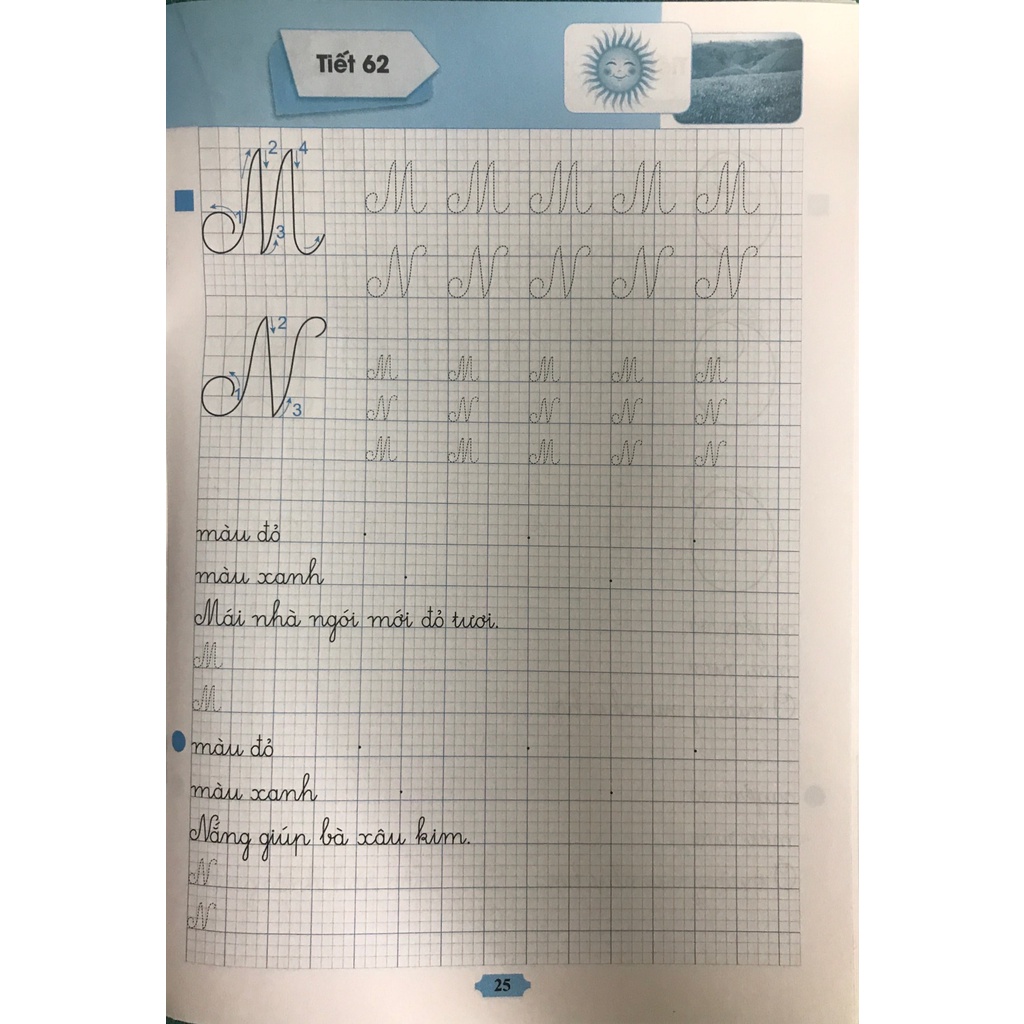 Tiết 62
M 1 2 3 4
M M M M M
N N N N N
N 1 2 3
M M M M M
N N N N N
M M M N N
màu đỏ
màu xanh
Mái nhà ngói mới đỏ tươi.
M
M
màu đỏ
màu xanh
Nắng giúp bà xâu kim.
N
N
25